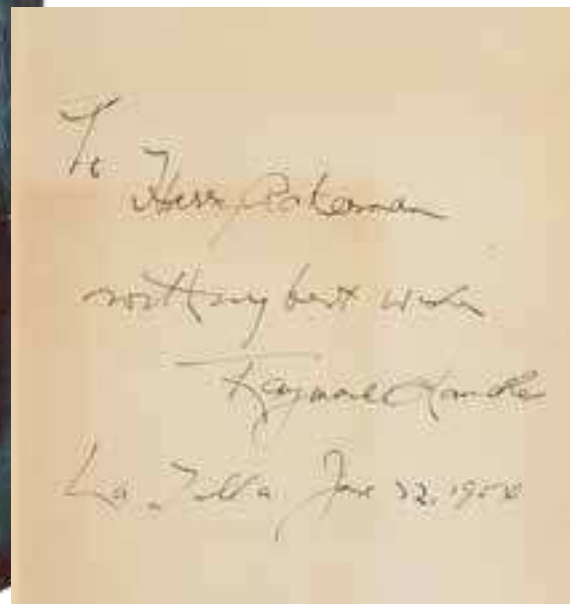 To
Harry Ackerman
with my best wishes
Raymond Chandler
La Jolla June 22, 1950